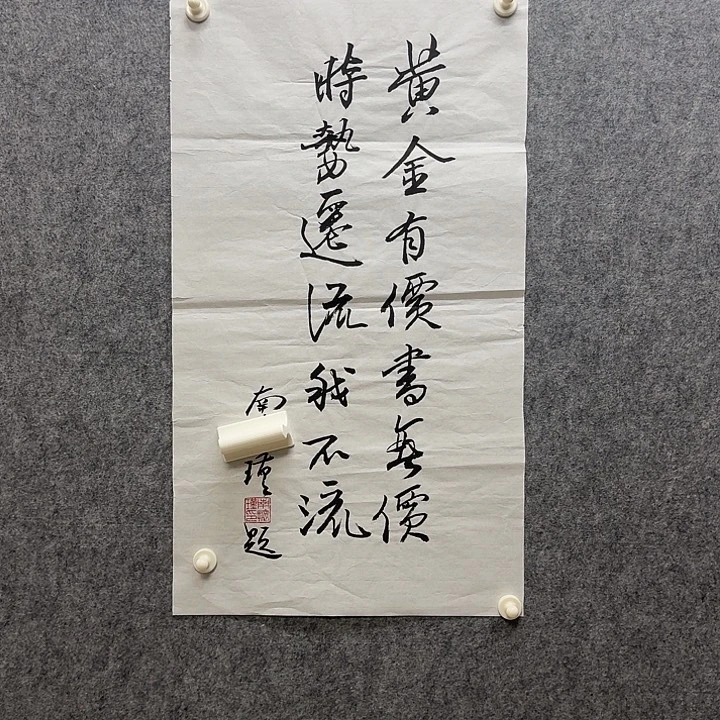 黄金有價書無價
時勢遷流我不流
南 瑾題